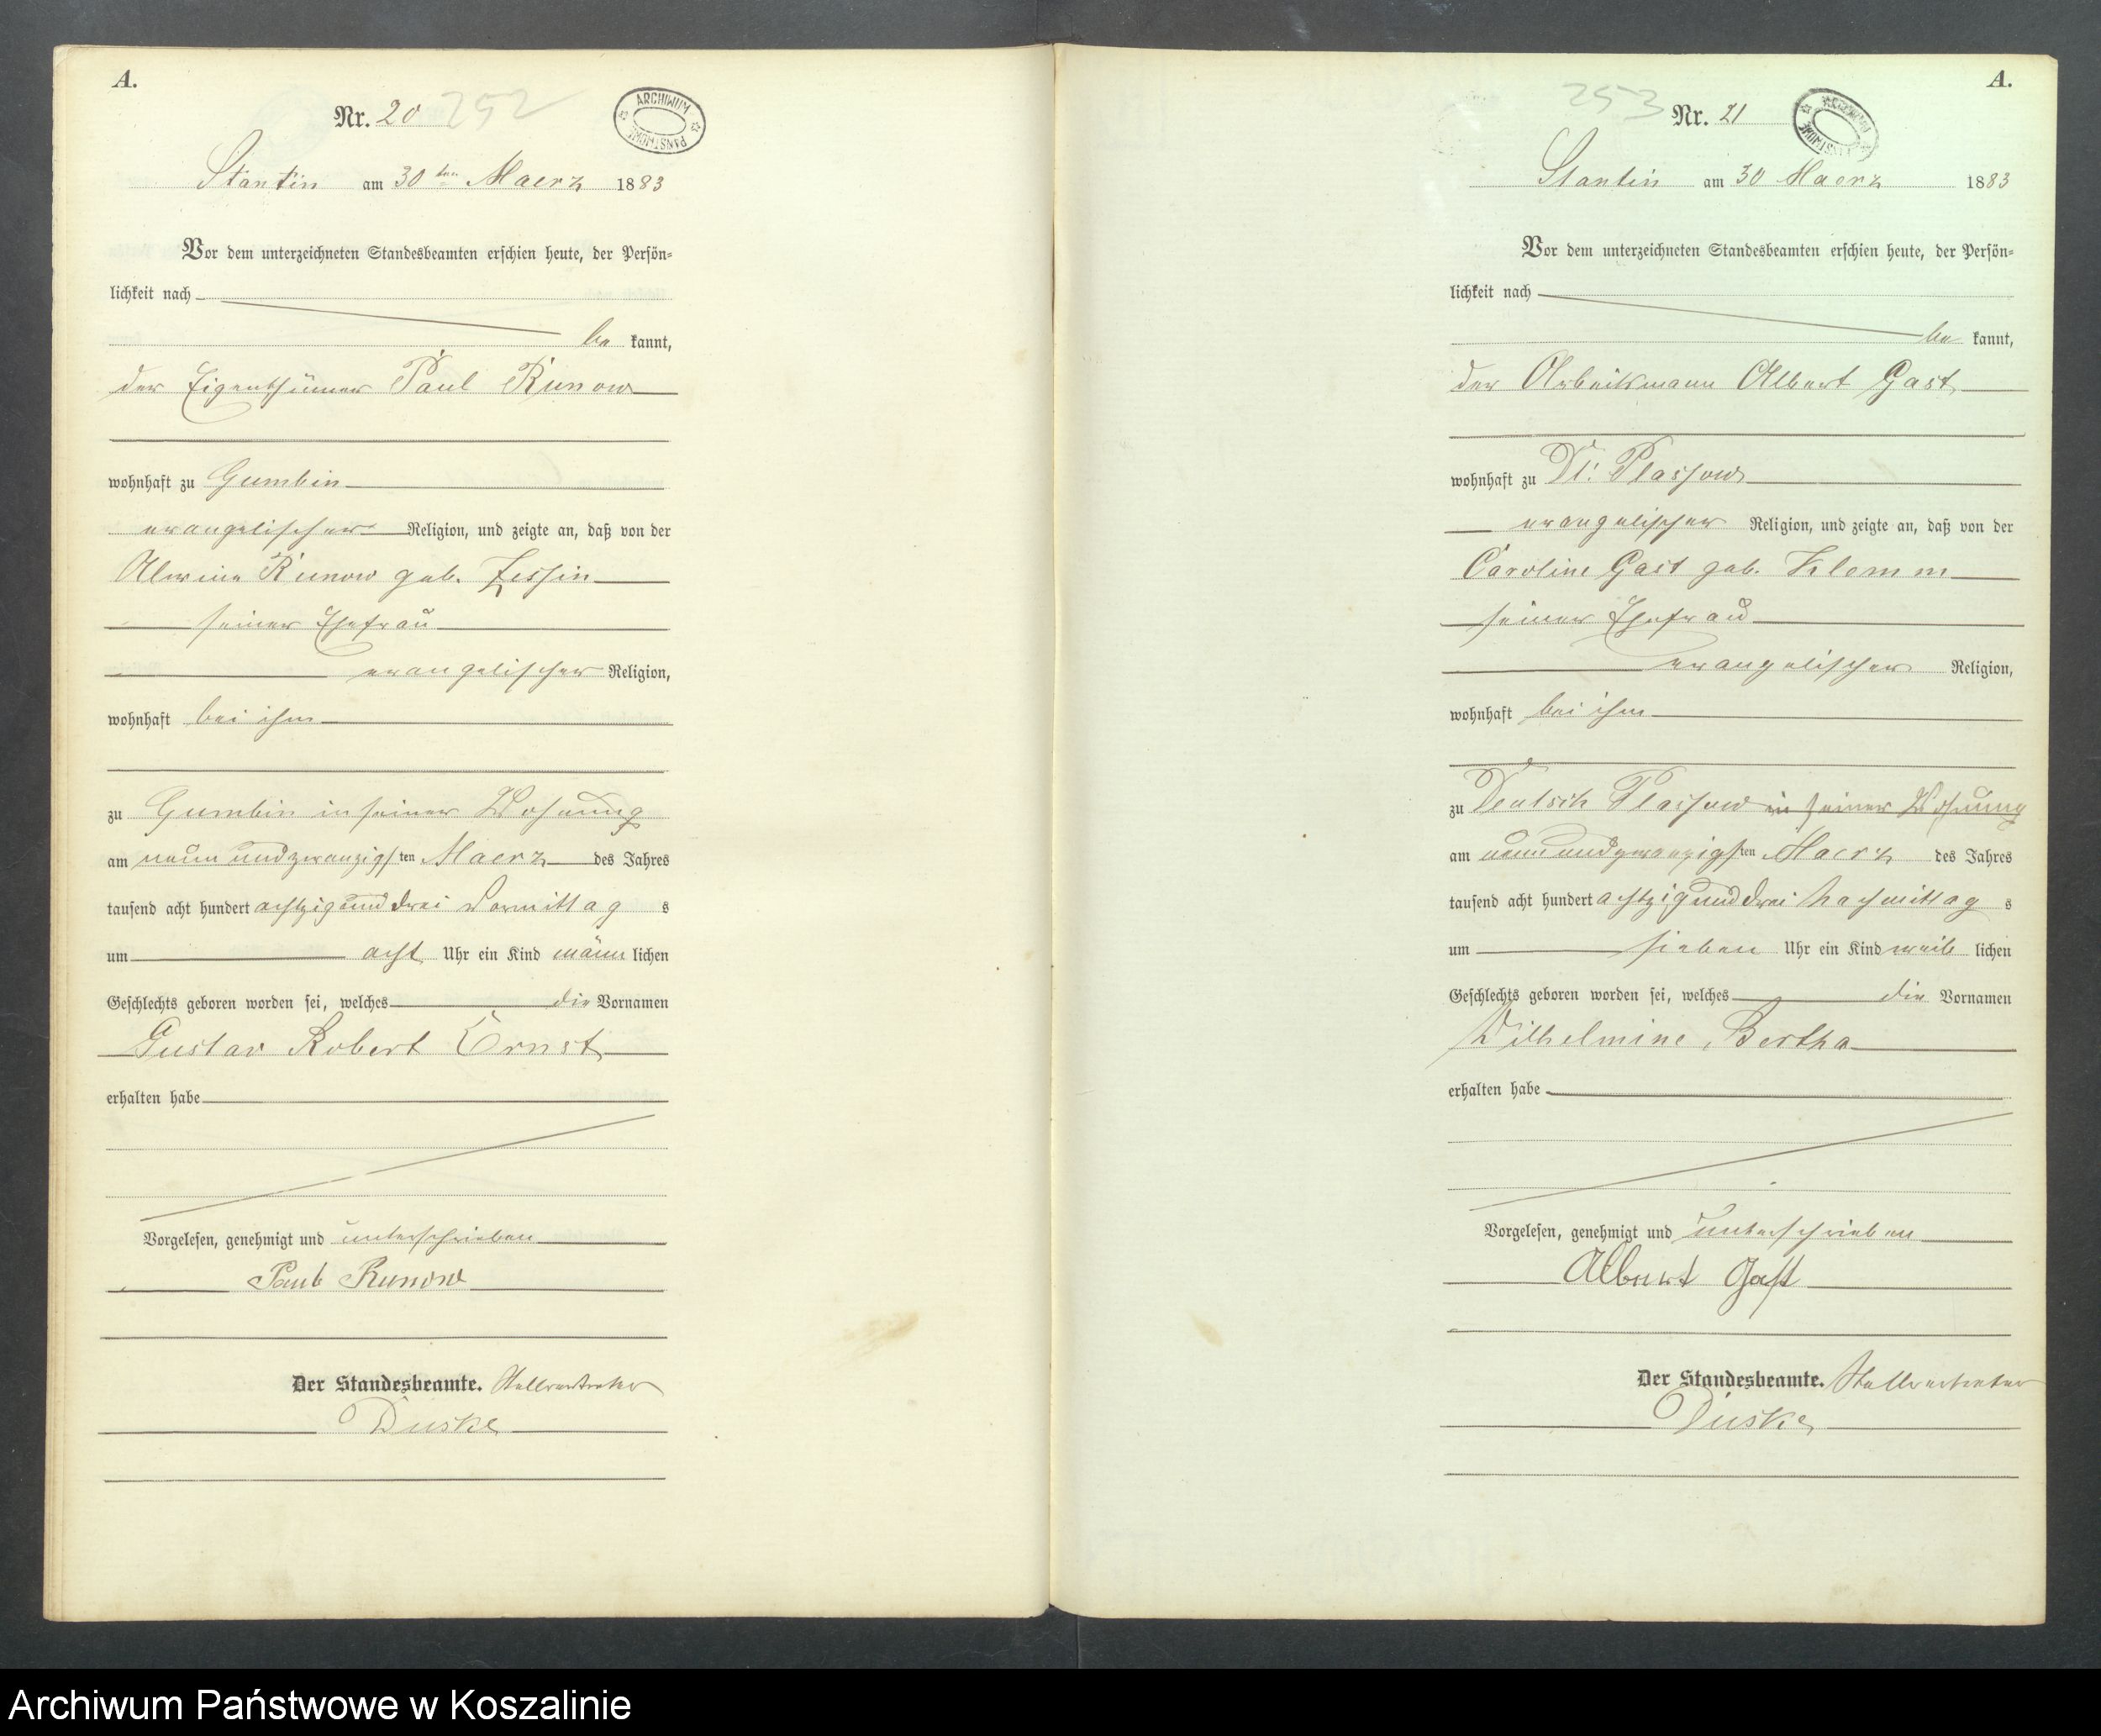 A.
Nr. 20 252
ARCHIWUM PAŃSTWOWE
Stantin am 30ten Maerz 1883
Vor dem unterzeichneten Standesbeamten erschien heute, der Persön=
lichkeit nach
be kannt,
der Eigenthümer Paul Runow
wohnhaft zu Gumbin
evangelischer Religion, und zeigte an, daß von der
Alwine Runow geb. Zessin
seiner Ehefrau
evangelischer Religion,
wohnhaft bei ihm
zu Gumbin in seiner Wohnung
am neunundzwanzigsten Maerz des Jahres
tausend acht hundert achtzigunddrei Vormittag s
um acht Uhr ein Kind männ lichen
Geschlechts geboren worden sei, welches die Vornamen
Gustav Robert Ernst
erhalten habe
Vorgelesen, genehmigt und unterschrieben
Paul Runow
Der Standesbeamte. Stellvertreter
Duske
A.
253 Nr. 21
ARCHIWUM PAŃSTWOWE
Stantin am 30 Maerz 1883
Vor dem unterzeichneten Standesbeamten erschien heute, der Persön=
lichkeit nach
be kannt,
der Arbeitsmann Albert Gast
wohnhaft zu Dt. Plassow
evangelischer Religion, und zeigte an, daß von der
Caroline Gast geb. Klemm
seiner Ehefrau
evangelischer Religion,
wohnhaft bei ihm
zu Deutsch Plassow in seiner Wohnung
am neunundzwanzigsten Maerz des Jahres
tausend acht hundert achtzigunddrei Nachmittag s
um sieben Uhr ein Kind weib lichen
Geschlechts geboren worden sei, welches die Vornamen
Wilhelmine, Bertha
erhalten habe
Vorgelesen, genehmigt und unterschrieben
Albert Gast
Der Standesbeamte. Stellvertreter
Duske
Archiwum Państwowe w Koszalinie